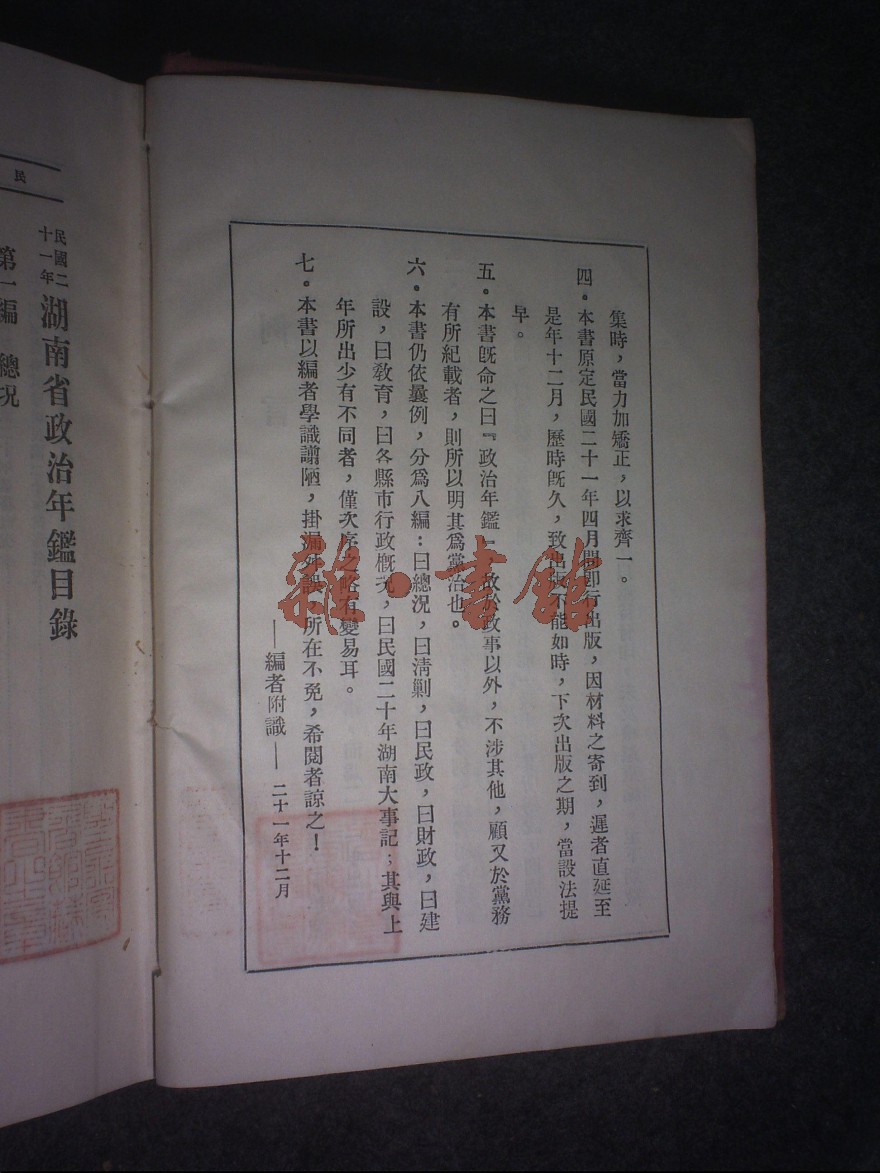 集時，當力加矯正，以求齊一。
四。本書原定民國二十一年四月間卽行出版，因材料之寄到，遲者直延至
是年十二月，歷時旣久，致出版不能如時，下次出版之期，當設法提
早。
五。本書旣命之曰『政治年鑑』，故於政事以外，不涉其他，顧又於黨務
有所紀載者，則所以明其爲黨治也。
六。本書仍依曩例，分爲八編：曰總況，曰淸剿，曰民政，曰財政，曰建
設，曰敎育，曰各縣市行政槪況，曰民國二十年湖南大事記；其與上
年所出少有不同者，僅次序之略有變易耳。
七。本書以編者學識譾陋，掛漏死誤，所在不免，希閱者諒之！
——編者附識—— 二十一年十二月
雜·書館
民
民國二十一年 湖南省政治年鑑目錄
第一編 總況